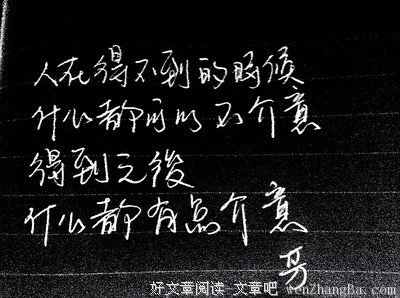 人在得不到的時候
什么都可以不介意
得到之後
什么都有点介意
好文章阅读-文章吧
wenZhangBa.com